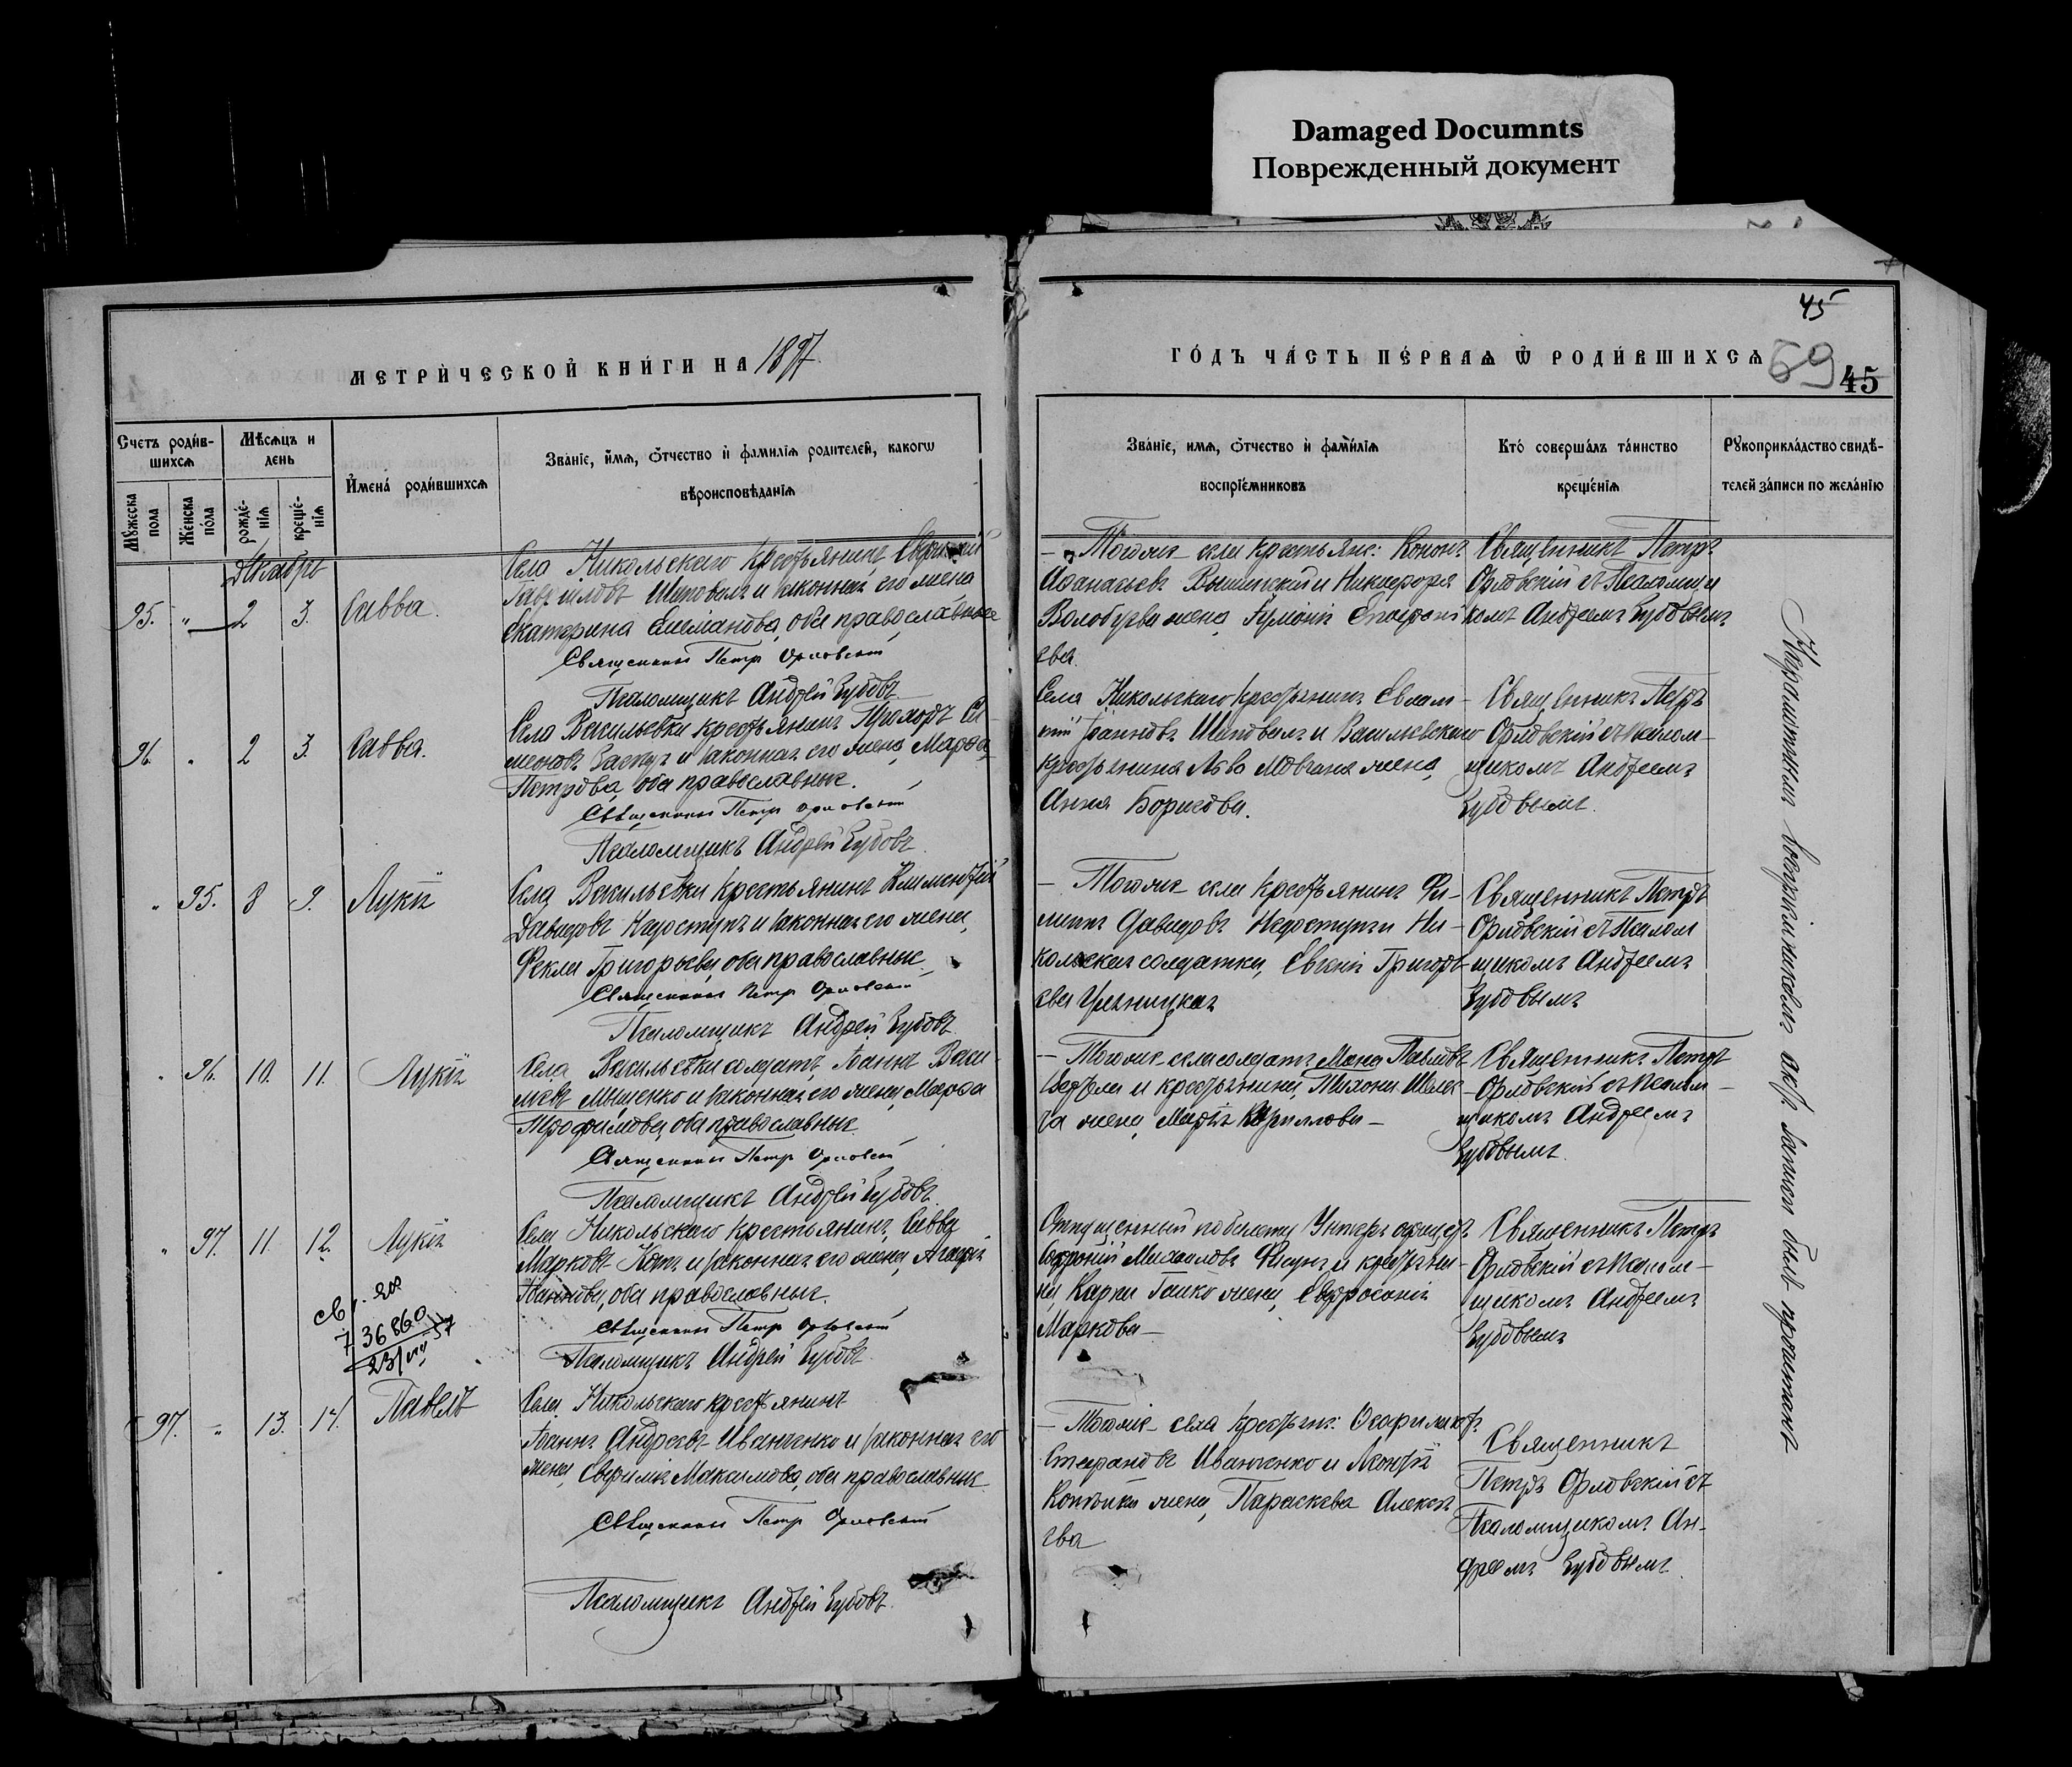 Damaged Documnts
Поврежденный документ
45
МЕТРИ́ЧЕСКОЙ КНИ́ГИ НА 1897
ГО́ДЪ ЧА́СТЬ ПЕ́РВАѦ Ѡ҆ РОДИ́ВШИХСѦ
69
45
Счетъ роди́в-
шихсѧ
Мꙋжеска пола
Же́нска по́ла
Мѣ́сѧцъ и день
рожде́-
нїѧ
креще́-
нїѧ
И҆мена́ роди́вшихсѧ
Зва́нїе, и҆́мѧ, ѻ҆́тчество и҆ фами́лїѧ роди́телей, какогѡ
вѣроисповѣ́данїѧ
Зва́нїе, имѧ, ѻ҆́тчество и҆ фами́лїѧ
воспрїе́мниковъ
Кто̀ соверша́лъ та́инство
креще́нїѧ
Рꙋкоприкла́дство свидѣ́-
телей за́писи по жела́нїю
Декабрь
95. " 2 3. Савва.
Села Никольскаго крестьянинъ
Шаповалъ и законная его жена
Екатерина оба православные
Священникъ Петр Орловский
Псаломщикъ Андрей Зубовъ
– Тогоже села крестьяне: Кононъ
Афанасьевъ и Никифора
жена,
ева.
Священникъ Петръ
Орловскій съ Псаломщи
комъ Андреемъ Зубовымъ
96. " 2 3. Савва.
Села Васильевки крестьянинъ Прохоръ Си-
меоновъ и законная его жена, Марфа
Петрова, оба православные.
Священникъ Петр Орловский
Псаломщикъ Андрей Зубовъ
Села Никольскаго крестьянинъ Евлам-
пій Іоанновъ Шаповалъ и Васильевскаго
крестьянина жена,
Анна Борисова.
Священникъ Петръ
Орловскій съ Псалом-
щикомъ Андреемъ
Зубовымъ.
" 95. 8 9. Лукія
Села Васильевки крестьянинъ Климентій
Давидовъ Недоступъ и законная его жена,
Фекла Григорьева, оба православные
Священникъ Петр Орловский
Псаломщикъ Андрей Зубовъ
– Тогоже села крестьянинъ Фи-
липпъ Давидовъ Недоступъ и Ни-
кольская солдатка, Евгенія Григорь-
ева
Священникъ Петръ
Орловскій съ Псалом
щикомъ Андреемъ
Зубовымъ
" 96. 10. 11. Лукія
Села Васильевки солдатъ, Іоаннъ Васи-
льевъ Мищенко и законная его жена, Марфа
Трофимова, оба православные.
Священникъ Петр Орловский
Псаломщикъ Андрей Зубовъ.
– Тогоже села солдатъ Павловъ
и крестьянина, Тихона
жена, Марія Кириллова –
Священникъ Петръ
Орловскій съ Псалом-
щикомъ Андреемъ
Зубовымъ.
" 97. 11. 12. Лукія
Села Никольскаго крестьянинъ, Савва
Марковъ и законная его жена, Агафія
Іоаннова, оба православные.
Священникъ Петр Орловский
Псаломщикъ Андрей Зубовъ
Отпущенный по билету Унтеръ офицеръ
Софроній Михайловъ и крестьяни-
на, Карпа жена, Евфросинія
Маркова –
Священникъ Петръ
Орловскій съ Псалом-
щикомъ Андреемъ
Зубовымъ
736860
97. " 13. 14. Павелъ
Села Никольскаго крестьянинъ
Іоаннъ Андреевъ Иванченко и законная его
жена, Евфимія Максимова, оба православные
Священникъ Петр Орловский
Псаломщикъ Андрей Зубовъ.
– Тогоже села крестьяне:
Стефановъ Иванченко и Леонтія
жена, Параскева Алексе-
ева
Священникъ
Петръ Орловскій съ
Псаломщикомъ Ан-
дреемъ Зубовымъ.
Неграмотнымъ воспріемникамъ актъ записи былъ прочитанъ